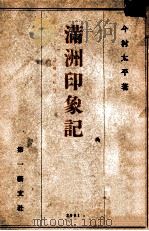 今村太平著
滿洲印象記
第一藝文社